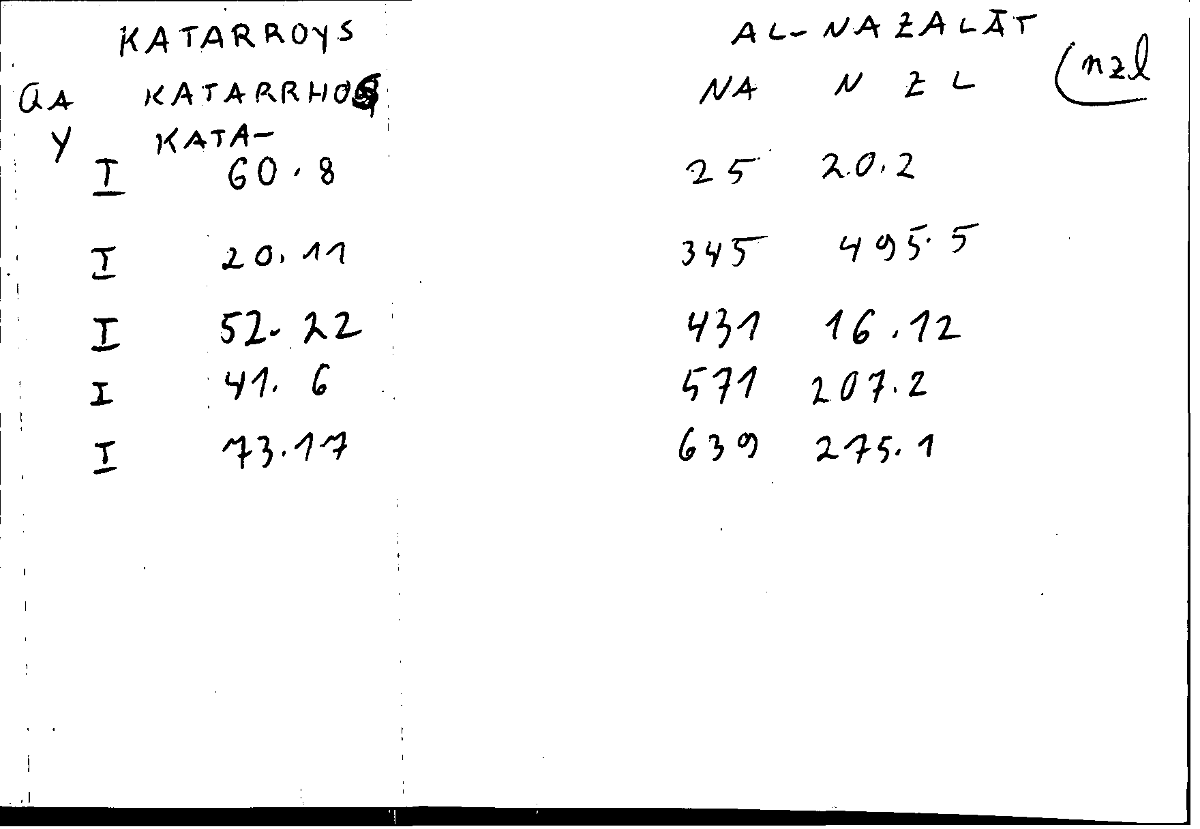 KATARROYS AL-NAZALĀT
GA KATARRHOS NA N Z L (nzl
Y KATA-
I 60.8 25 20.2
I 20.11 345 495.5
I 52.22 431 16.12
I 41.6 571 207.2
I 73.17 639 275.1